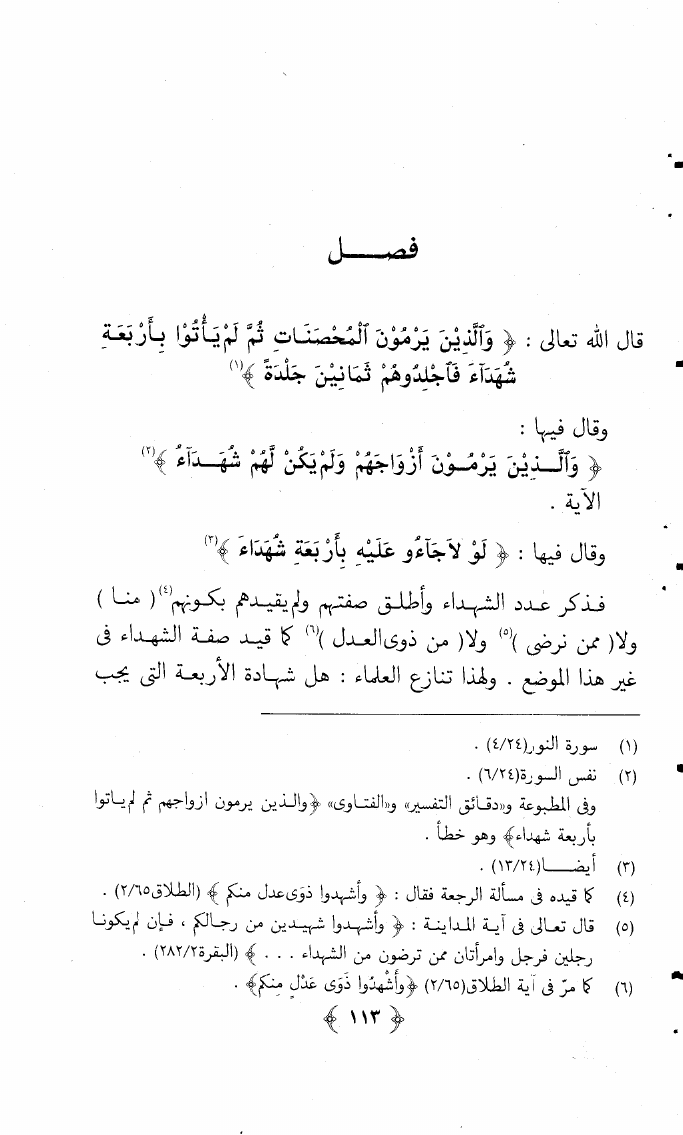 فصــــل
قال الله تعالى : ﴿ وَٱلَّذِيْنَ يَرْمُوْنَ ٱلْمُحْصَنَـاتِ ثُمَّ لَمْ يَأْتُوْا بِـأَرْبَعَـةِ
شُهَدَآءَ فَٱجْلِدُوهُمْ ثَمَانِيْنَ جَلْدَةً ﴾(١)
وقال فيها :
﴿ وَٱلَّــذِيْنَ يَرْمُــوْنَ أَزْوَاجَهُمْ وَلَمْ يَكُنْ لَّهُمْ شُهَــدَآءُ ﴾(٢)
الآية .
وقال فيها : ﴿ لَوْ لاَجَآءُو عَلَيْهِ بِأَرْبَعَةِ شُهَدَاءَ ﴾(٣)
فـذكر عـدد الشهـداء وأطلـق صفتهم ولم يقيـدهم بكـونهم(٤)( منـا )
ولا( ممن نرضى )(٥) ولا( من ذوى العـدل )(٦) كما قيد صفـة الشهـداء فى
غير هذا الموضع . ولهذا تنازع العلماء : هل شهـادة الأربعـة التى يجب
(١) سورة النور(٤/٢٤) .
(٢) نفس السورة(٦/٢٤) .
وفى المطبوعة و«دقائق التفسير» و«الفتاوى» ﴿والـذين يرمون ازواجهم ثم لم يـاتوا
بأربعة شهداء﴾ وهو خطأ .
(٣) أيضـــا(١٣/٢٤) .
(٤) كما قيده فى مسألة الرجعة فقال : ﴿ وأشهدوا ذوى عدل منكم ﴾ (الطلاق٢/٦٥) .
(٥) قال تعـالى فى آيـة المداينـة : ﴿ وأشهـدوا شهيـدين من رجـالكم ، فـإن لم يكونـا
رجلين فرجل وامرأتان ممن ترضون من الشهداء . . . ﴾ (البقرة٢٨٢/٢) .
(٦) كما مرّ فى آية الطلاق(٢/٦٥) ﴿وأشْهِدُوا ذَوَى عَدْلٍ مِنكم﴾ .
﴿ ١١٣ ﴾